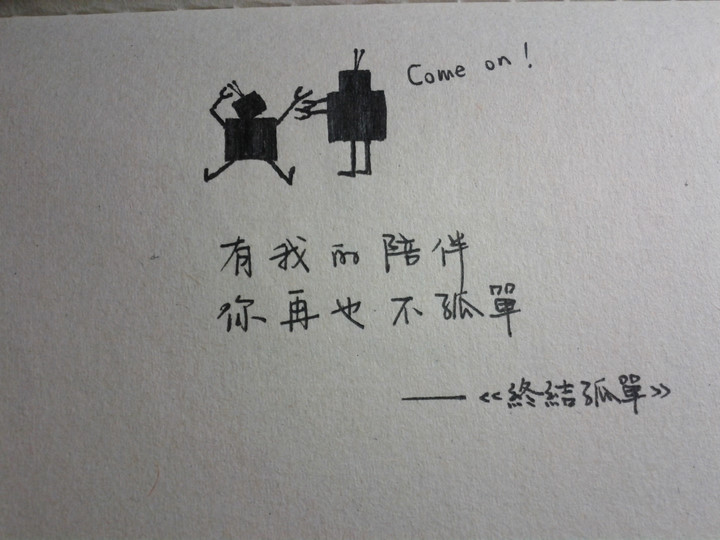 Come on!
有我的陪伴
你再也不孤單
——《終結孤單》